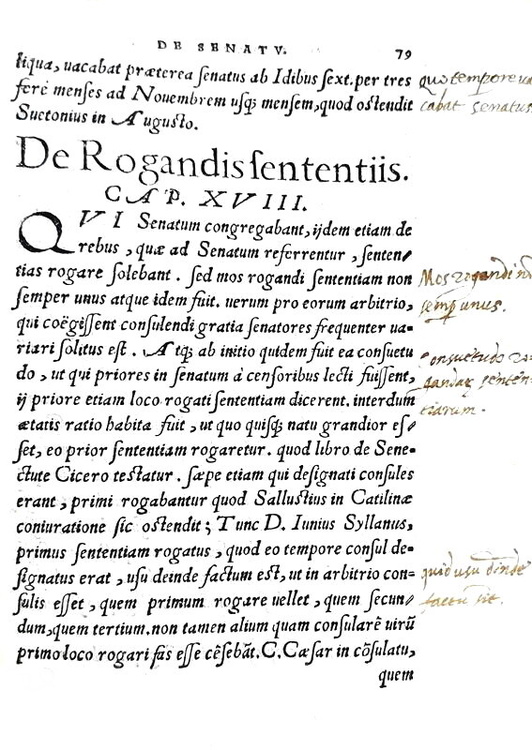 DE SENATV. 79
liqua, uacabat præterea senatus ab Idibus sext. per tres
ferè menses ad Nouembrem usq; mensem, quod ostendit
Suetonius in Augusto.
quo tempore va
cabat senatus
De Rogandis sententiis.
CAP. XVIII.
QVI Senatum congregabant, ijdem etiam de
rebus, quæ ad Senatum referrentur, senten/
tias rogare solebant. sed mos rogandi sententiam non
semper unus atque idem fuit. uerum pro eorum arbitrio,
qui coëgissent consulendi gratia senatores frequenter ua=
riari solitus est. Atq; ab initio quidem fuit ea consuetu
do, ut qui priores in senatum à censoribus lecti fuissent,
ij priore etiam loco rogati sententiam dicerent. interdum
ætatis ratio habita fuit, ut quo quisq; natu grandior es/
set, eo prior sententiam rogaretur. quod libro de Sene=
ctute Cicero testatur. sæpe etiam qui designati consules
erant, primi rogabantur quod Sallustius in Catilinæ
coniuratione sic ostendit; Tunc D. Iunius Syllanus,
primus sententiam rogatus, quod eo tempore consul de=
signatus erat, usu deinde factum est, ut in arbitrio con=
sulis esset, quem primum rogare uellet, quem secun/
dum, quem tertium. non tamen alium quam consularē uirū
primo loco rogari fas esse cēsebāt. C. Cæsar in cōsulatu,
quem
Mos rogandi nō
semp unus.
consuetudo ro-
gandar senten
tiarum.
quid usu dinde
factū sit.